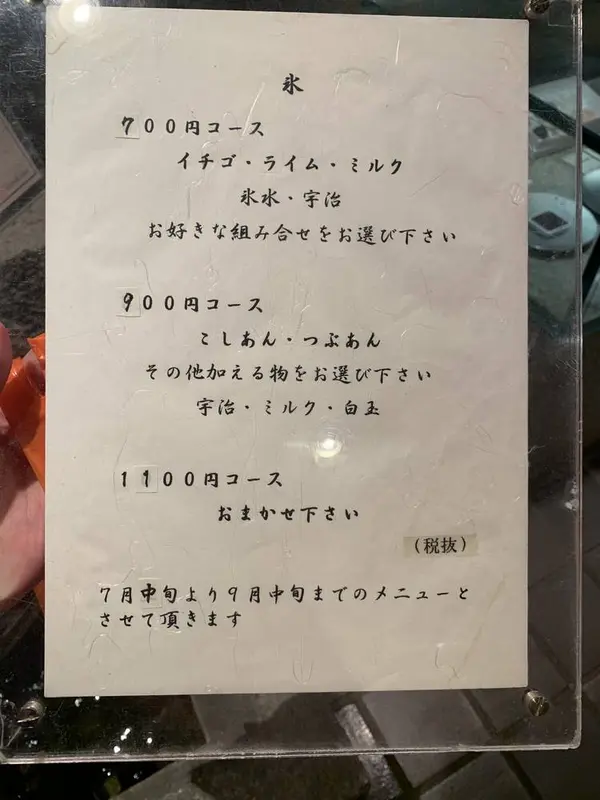 氷
700円コース
イチゴ・ライム・ミルク
氷水・宇治
お好きな組み合せをお選び下さい
900円コース
こしあん・つぶあん
その他加える物をお選び下さい
宇治・ミルク・白玉
1100円コース
おまかせ下さい
(税抜)
7月中旬より9月中旬までのメニューと
させて頂きます